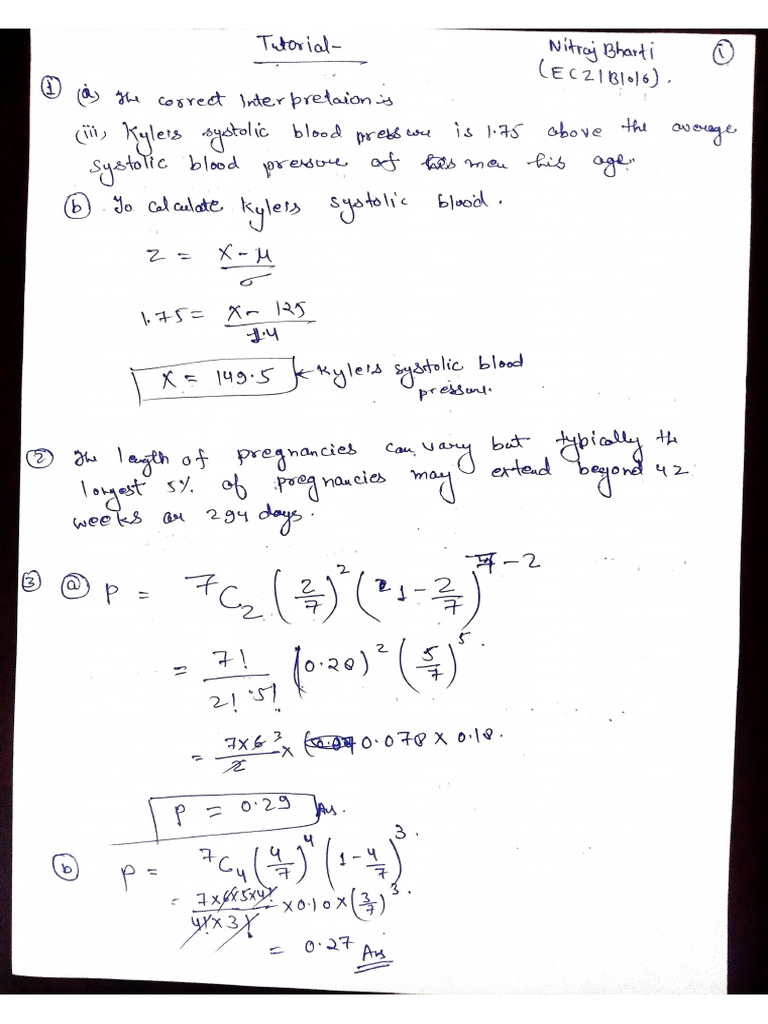 Tutorial-
Nitraj Bharti
(EC21B1016).
①
① (a) The correct Interpretaion is
(iii) Kyle's systolic blood pressure is 1.75 above the average
systolic blood pressure of men his age.
ⓑ To calculate Kyle's systolic blood.
Z = X-μ / σ
1.75 = X- 125 / 14
X = 149.5 ← Kyle's systolic blood
pressure.
② The length of pregnancies can vary but typically the
longest 5% of pregnancies may extend beyond 42
weeks or 294 days.
③ ⓐ P = ⁷C₂ (2/7)² (1-2/7)⁷⁻²
= 7! / 2! 5! (0.28)² (5/7)⁵.
= 7×6³ / 2 × 0.078 × 0.18.
P = 0.29 Ans.
ⓑ P = ⁷C₄ (4/7)⁴ (1-4/7)³.
= 7×6×5×4! / 4!×3! ×0.10×(3/7)³.
= 0.27 Ans